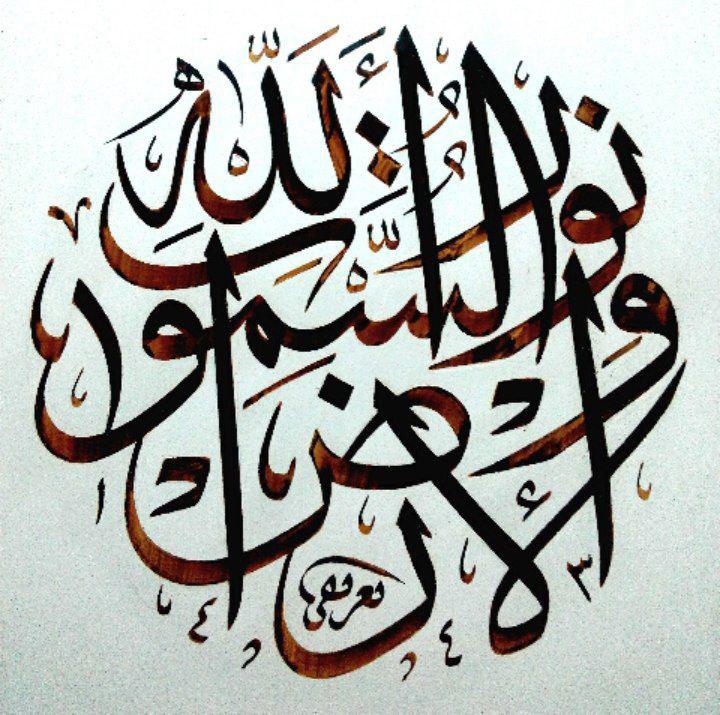 اللَّهُ نُورُ السَّمَوَاتِ وَالْأَرْضِ